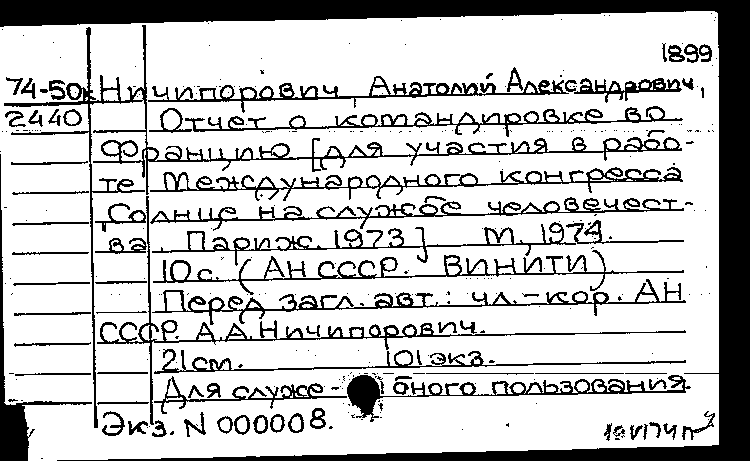 1899
74-50к Ничипорович, Анатолий Александрович,
2440 Отчет о командировке во
Францию [для участия в рабо-
те Международного конгресса
"Солнце на службе человечест-
ва". Париж. 1973] М., 1974.
10 с. (АН СССР. ВИНИТИ)
Перед загл. авт.: чл.-кор. АН
СССР. А.А. Ничипорович.
21 см. 101 экз.
Для служе- бного пользования.
Экз. N 000008.